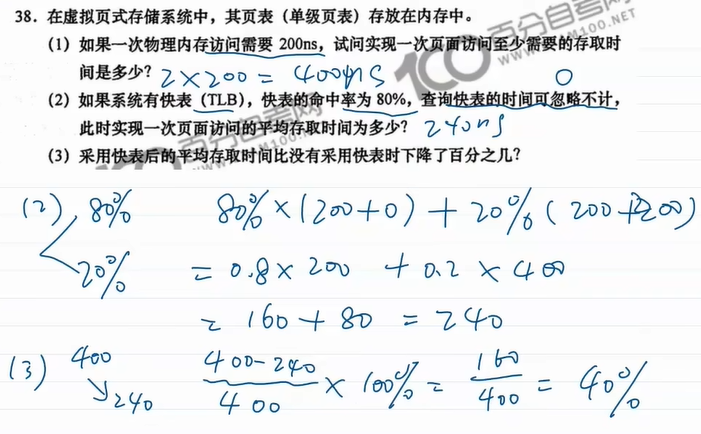 38. 在虚拟页式存储系统中，其页表（单级页表）存放在内存中。
(1) 如果一次物理内存访问需要 200ns，试问实现一次页面访问至少需要的存取时
间是多少？ 2×200 = 400ns
0
(2) 如果系统有快表（TLB），快表的命中率为 80%，查询快表的时间可忽略不计，
此时实现一次页面访问的平均存取时间为多少？ 240ns
(3) 采用快表后的平均存取时间比没有采用快表时下降了百分之几？
(2) 80% 80%×(200+0) + 20%(200+200)
20% = 0.8×200 + 0.2×400
= 160+80 = 240
(3) 400 400-240/400 × 100% = 160/400 = 40%
240
百分自考网
100